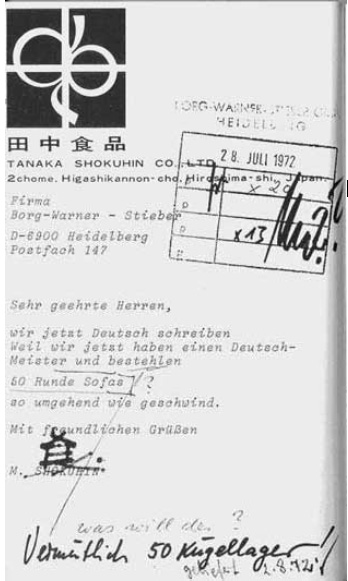 BORG-WARNER-STIEBER GMBH
HEIDELBERG
田中食品
TANAKA SHOKUHIN CO., LTD.
2chome. Higashikannon-cho, Hiroshima-shi, Japan.
28. JULI 1972
x 20
x 13
Firma
Borg-Warner - Stieber
D-6900 Heidelberg
Postfach 147
Sehr geehrte Herren,
wir jetzt Deutsch schreiben
Weil wir jetzt haben einen Deutsch-
Meister und bestehlen
50 Runde Sofas ?
so umgehend wie geschwind.
Mit freundlichen Grüßen
M. SHOKUHIN
was will der ?
Vermutlich 50 Kugellager!
geliefert 2.8.72